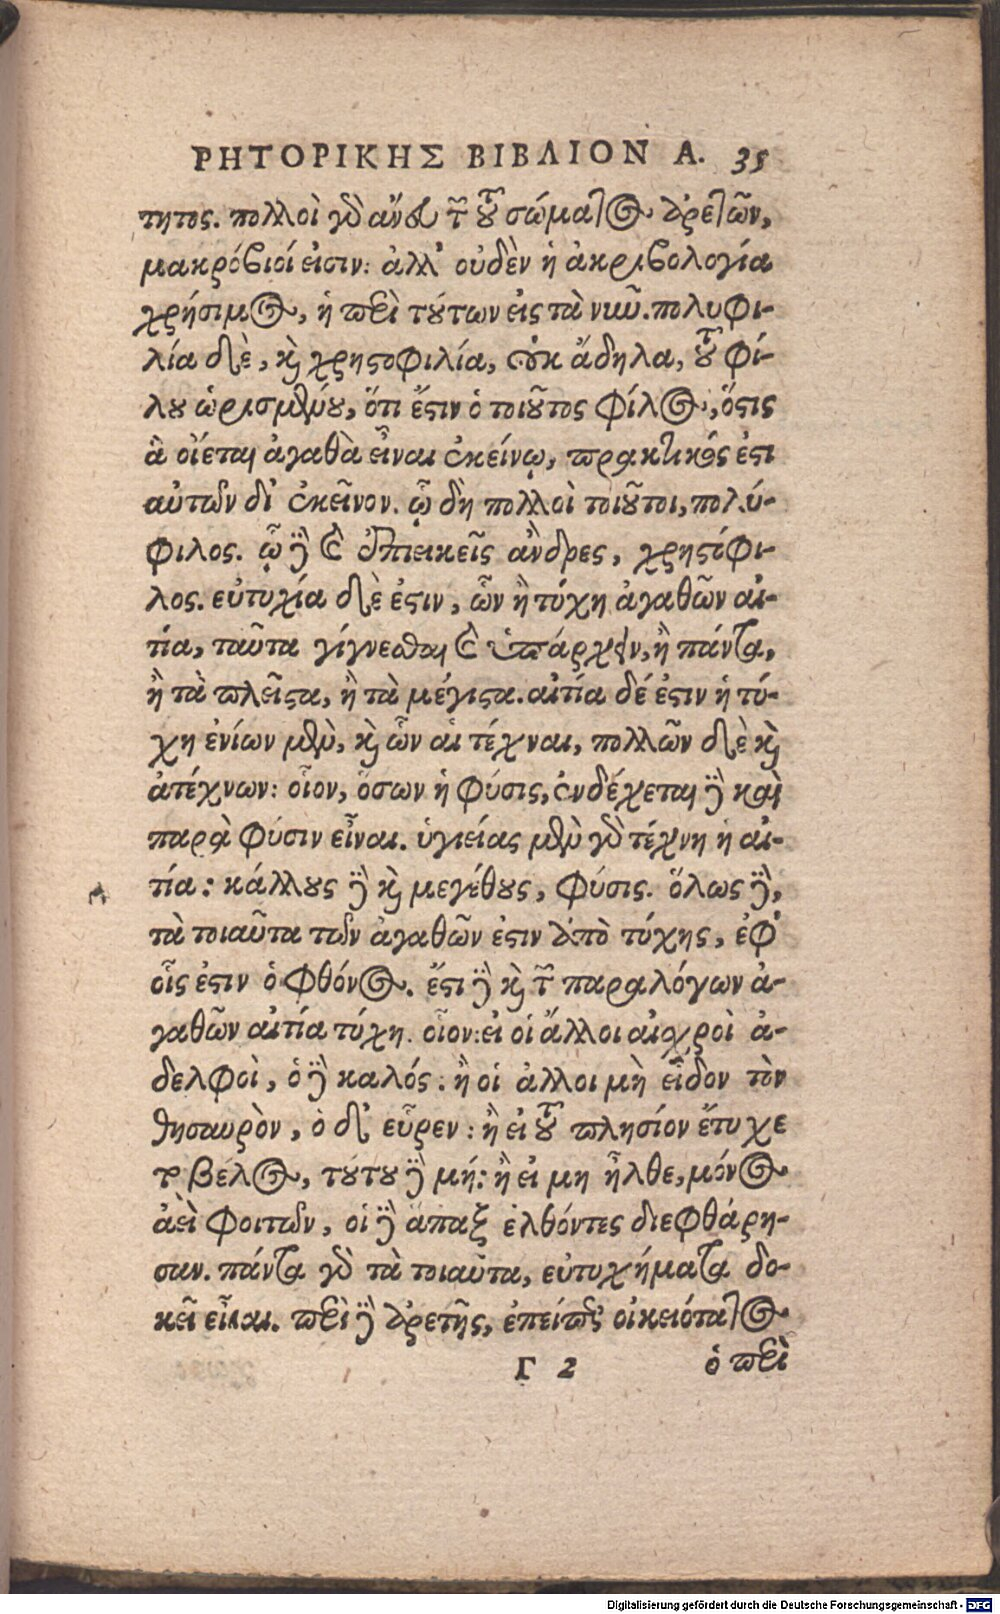 ΡΗΤΟΡΙΚΗΣ ΒΙΒΛΙΟΝ Α. 35
τητος. πολλοὶ γὸ ἄνευ τ̃ τοῦ σώματος ἀρετῶν,
μακρόβιοί εἰσιν: ἀλλ' οὐδὲν ἡ ἀκριβολογία
χρήσιμος, ἡ περὶ τούτων εἰς τὰ νιῦ. πολυφι-
λία δὲ, καὶ χρηστοφιλία, οὐκ ἄδηλα, τοῦ φί-
λου ὡρισμένου, ὅτι ἔστιν ὁ τοιοῦτος φίλος, ὅστις
ἃ οἴεται ἀγαθὰ εἶναι ἐκείνῳ, πρακτικός ἐστι
αὐτῶν δι' ἐκεῖνον. ᾧ δὴ πολλοὶ τοιοῦτοι, πολύ-
φιλος. ᾧ δὲ καὶ ἐπιεικεῖς ἄνδρες, χρηστόφι-
λος. εὐτυχία δὲ ἐστιν, ὧν ἡ τύχη ἀγαθῶν αἰ-
τία, ταῦτα γίγνεσθαι καὶ ὑπάρχειν, ἢ πάντα,
ἢ τὰ πλεῖστα, ἢ τὰ μέγιστα. αἰτία δέ ἐστιν ἡ τύ-
χη ἐνίων μὲν, καὶ ὧν αἱ τέχναι, πολλῶν δὲ καὶ
ἀτέχνων: οἷον, ὅσων ἡ φύσις, ἐνδέχεται δὲ καὶ
παρὰ φύσιν εἶναι. ὑγιείας μὲν γὸ τέχνη ἡ αἰ-
τία: κάλλους δὲ καὶ μεγέθους, φύσις. ὅλως δὲ,
τὰ τοιαῦτα τῶν ἀγαθῶν ἐστιν ἀπὸ τύχης, ἐφ'
οἷς ἐστιν ὁ φθόνος. ἔστι δὲ καὶ τ̃ παραλόγων ἀ-
γαθῶν αἰτία τύχη. οἷον: εἰ οἱ ἄλλοι αἰσχροὶ ἀ-
δελφοὶ, ὁ δὲ καλός: ἢ οἱ ἄλλοι μὴ εἶδον τὸν
θησαυρὸν, ὁ δ' εὗρεν: ἢ εἰ τοῦ πλησίον ἔτυχε
τ βέλος, τούτου δὲ μή: ἢ εἰ μη ἦλθε, μόνος
ἀεὶ φοιτῶν, οἱ δὲ ἅπαξ ἐλθόντες διεφθάρη-
σαν. πάντα γὸ τὰ τοιαῦτα, εὐτυχήματα δο-
κεῖ εἶναι. περὶ δὲ ἀρετῆς, ἐπείπερ οἰκειότατος
Γ 2 ὁ περὶ
Digitalisierung gefördert durch die Deutsche Forschungsgemeinschaft - DFG